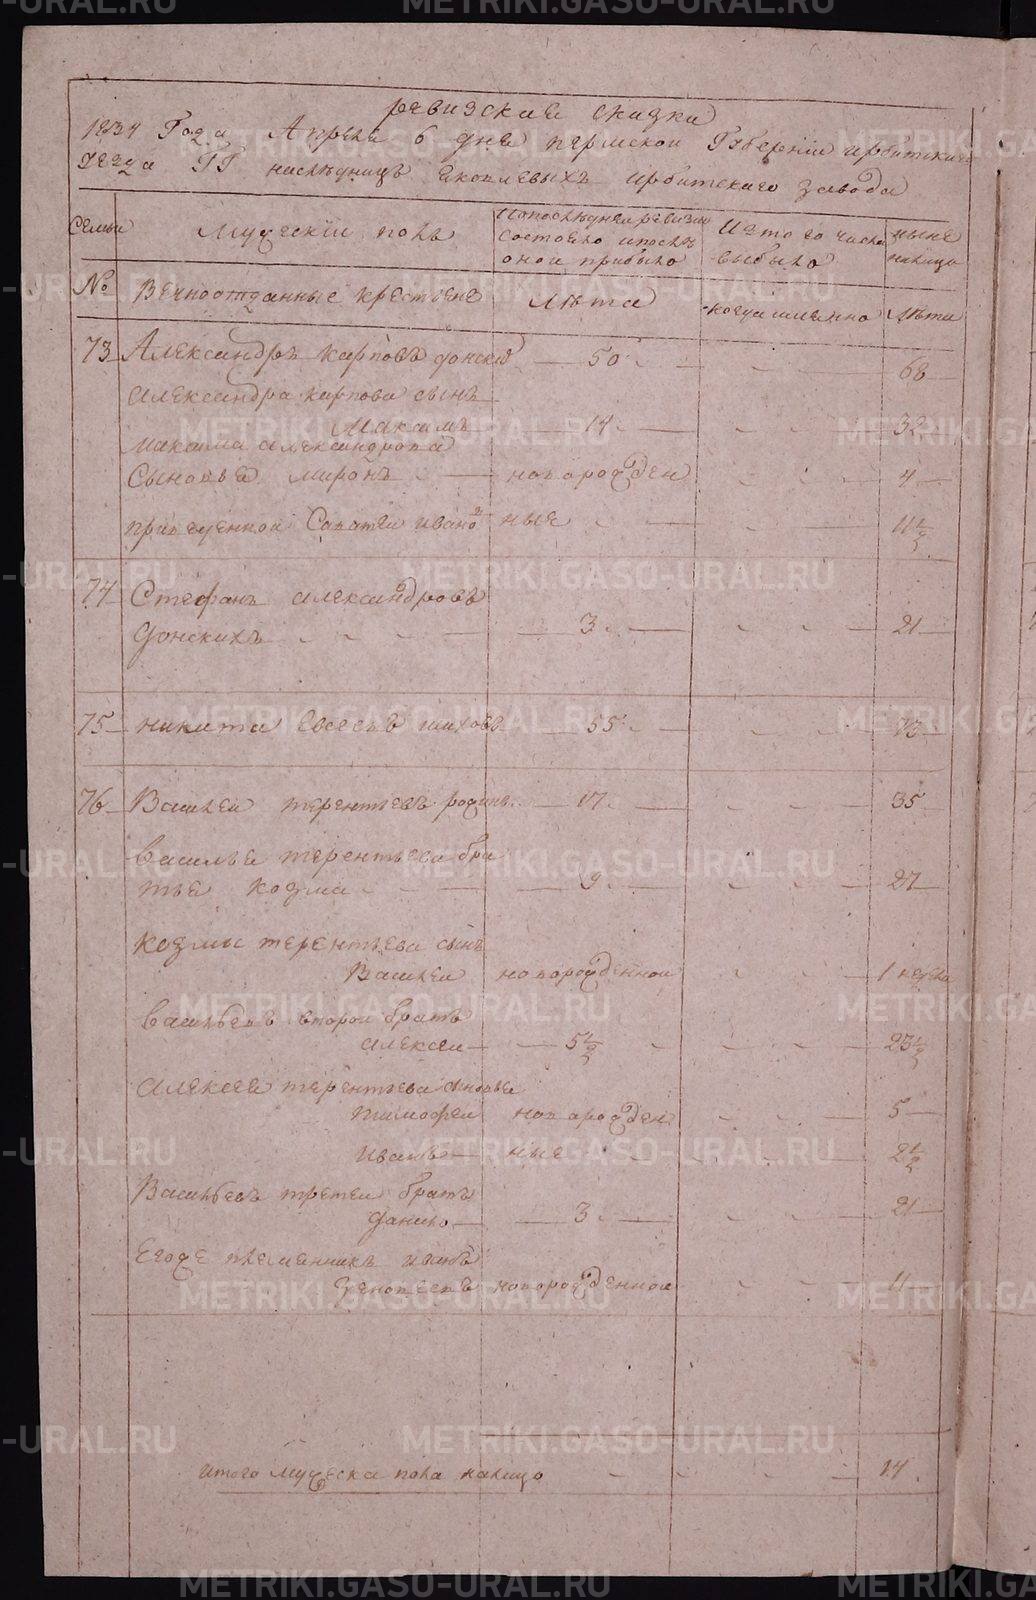 ревизские сказки
1834 Года Апреля 6 дня пермской Губернии ирбитского
уезда ГГ наследницъ Яковлевыхъ ирбитского завода
Семьи Мужескии полъ По последнеи ревизии состояло и после онои прибыло Изъ того числа выбыло ныне налицо
№ Вечноотданные крестьяне Лѣта когда именно Лѣта
73 Александръ карповъ донских 50 68
Александра карпова сынъ
Максимъ 14 32
Максима александрова
Сыновья миронъ новорожден 4
Савате иванъ ные 11 1/2
74 Стефанъ александровъ
донскихъ 3 21
75 никита Евсеевъ шиховъ 55 73
76 Василеи терентьевъ родинъ 17 35
Василья терентьева бра
тье козма 9 27
козмы терентьева сынъ
Василеи новорожденнои 1 неделя
Васильевъ второи братъ
алексеи 5 1/2 23 1/2
Алексея терентьева сыновья
тимофеи новорожден 5
иванъ ные 2 1/2
Васильевъ третеи братъ
данило 3 21
Егоже племянникъ
новорожденнои 11
итого мужеска пола налицо 14
METRIKI.GASO-URAL.RU